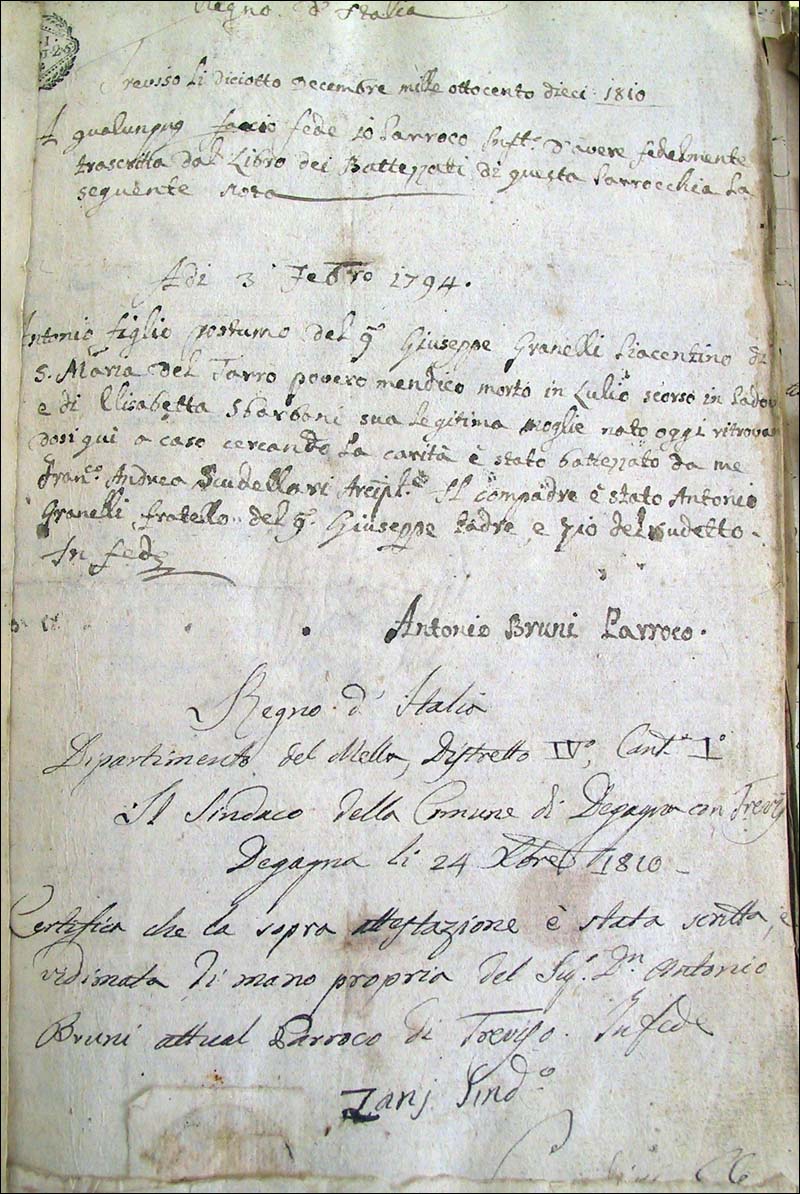 Regno d'Italia
Treviso li diciotto Decembre mille ottocento dieci 1810
A qualunque faccio fede io Parroco Inftº. d'avere fedelmente
trascritta dal Libro dei Battezzati di questa Parrocchia la
seguente nota
Adi 3 Febrº 1794.
Antonio figlio postumo del qº Giuseppe Granelli Piacentino di
S. Maria del Tarro povero mendico morto in Lulio scorso in Padova
e di Elisabetta Sbarboni sua legitima moglie nato oggi ritrovan
dosi qui a caso cercando la carità è stato battezzato da me
Franº. Andrea Scudellari Arciptº. Il compadre è stato Antonio
Granelli fratello del qº. Giuseppe Padre, e zio del sudetto.
In fede
Antonio Bruni Parroco.
Regno d'Italia
Dipartimento del Mella, Distretto IVº, Cantº Iº
Il Sindaco della Comune di Degagna con
Degagna li 24 Xbre 1810
Certifica che la sopra attestazione è stata scritta, e
vidimata di mano propria del Sigʳ. Dⁿ Antonio
Bruni attual Parroco di Treviso. In fede
Zanj Sindº
26